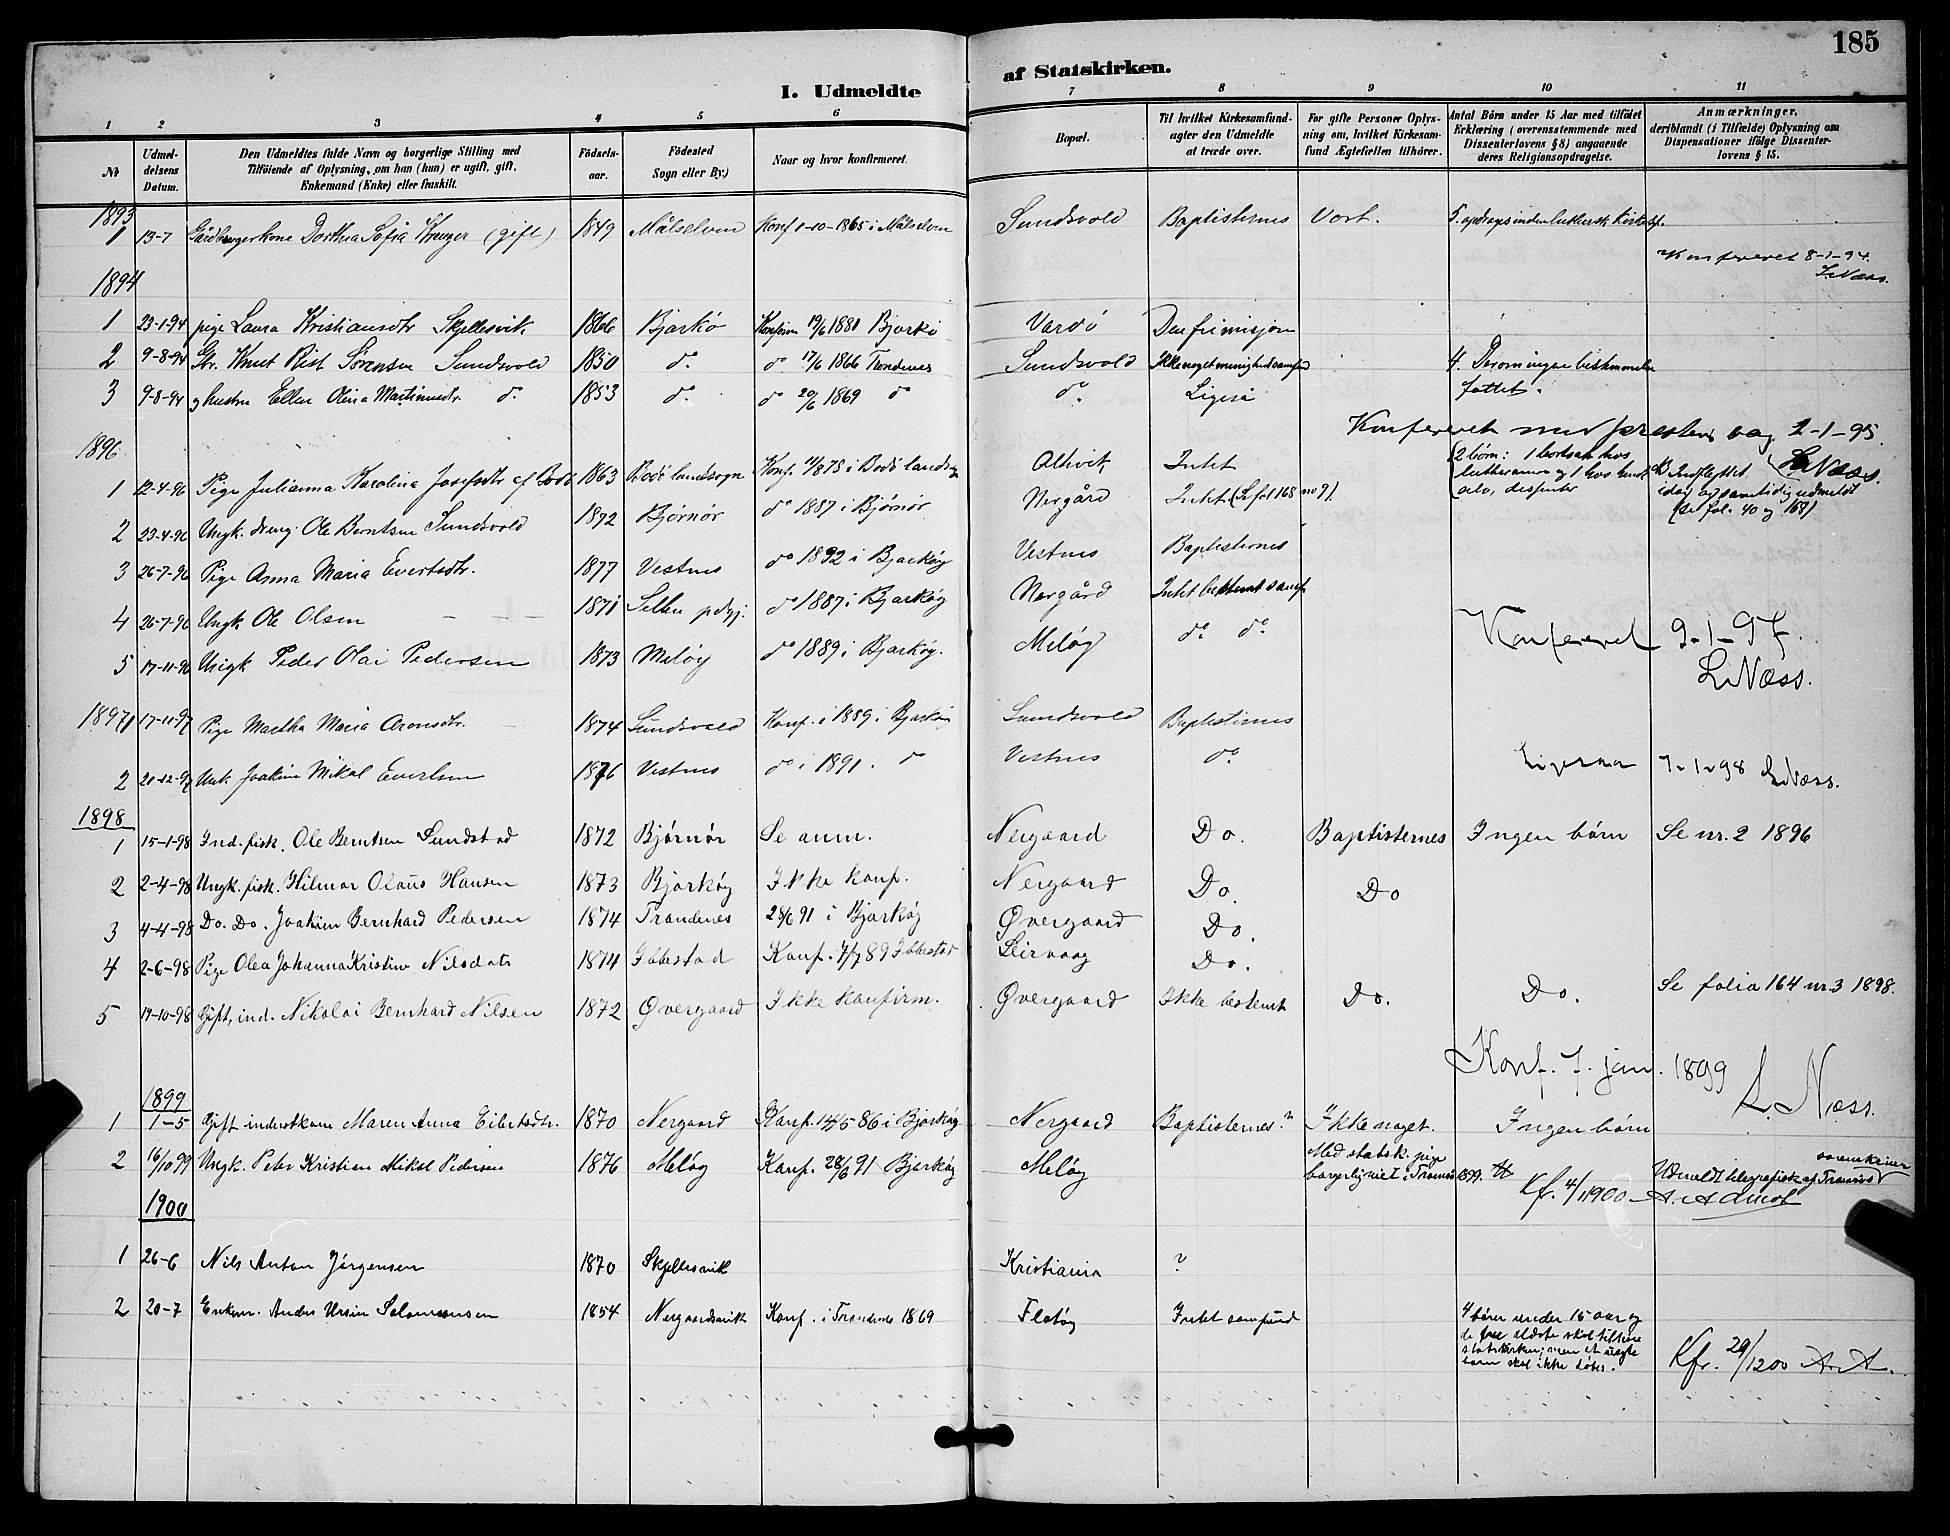 185
I. Udmeldte af Statskirken.
1 2 3 4 5 6 7 8 9 10 11
№ | Udmeldelsens Datum. | Den Udmeldtes fulde Navn og borgerlige Stilling med Tilföiende af Oplysning, om han (hun) er ugift, gift, Enkemand (Enke) eller fraskilt. | Födselsaar. | Födested Sogn eller By.) | Naar og hvor konfirmeret. | Bopæl. | Til hvilket Kirkesamfund agter den Udmeldte at træde over. | For gifte Personer Oplysning om, hvilket Kirkesamfund Ægtefællen tilhörer. | Antal Börn under 15 Aar med tilföiet Erklæring (overensstemmende med Dissenterlovens § 8) angaaende deres Religionsopdragelse. | Anmærkninger, deriblandt (i Tilfælde) Oplysning om Dispensationer ifölge Dissenterlovens § 15.
1893
1 13-7 Gårdbrugerkone Dorthea Sofia Kruger (gift) 1849 Målselven Konf 1-10-1865 i Målselven Sundsvold Baptisternes Vort. 5. opdrages inden luthersk kirkesf.
Konfereret 8-1-94. L. Næss.
1894
1 23-1-94 pige Laura Kristiansdtr Skjellesvik 1866 Bjarkö Konfirm 19/6 1881 Bjarkö Vardö Den frimisjon
2 9-8-94 Gbr. Knut Rist Sörensen Sundsvold 1850 do. do 17/6 1866 Trondenes Sundsvold Ikke noget menighedssamfund 4. Derom ingen bestemmelse fattet.
3 9-8-94 og hustru Ellen Olina Martinusdtr. do. 1853 do. do 20/6 1869 do do. Ligeså
Konfereret med prestens bog 2-1-95. L. Næss.
1896
1 12-4-96 Pige Julianna Karolina Josefsdtr af Bodö 1863 Bodö landsogn Konf. 1878 i Bodö landsogn Altevik Intet 2 börn: 1 bortsat hos lutheraner og 1 hos hende selv, dissenter Indflyttet idag og samtidig udmeldt (se fol. 40 og 168)
2 23-4-96 Ungk. dreng Ole Berntsen Sundsvold 1872 Bjørnør do 1887 i Bjørnør Nergård Intet (Se fol 168 no 9).
3 26-7-96 Pige Anna Maria Evertsdtr. 1877 Vestnes do 1892 i Bjarkøy Vestnes Baptisternes
4 26-7-96 Ungk. Ole Olsen 1871 do 1887 i Bjarkøy Nergård Intet bestemt samf
5 17-11-96 Ungk Peder Olai Pedersen 1873 Meløy do 1889 i Bjarkøy. Meløy do. do.
Konfereret 9-1-97. L. Næss.
1897
1 17-11-97 Pige Martha Maria Aronsdtr. 1874 Sundsvold Konf. i 1889 i Bjarkøy Sundsvold Baptisternes
2 20-12-97 Unk. Joakim Mikal Evertsen 1876 Vestnes do i 1891. do Vestnes do
Ligesaa 7-1-98 L. Næss.
1898
1 15-1-98 Ind. fisk. Ole Berntsen Sundstad 1872 Bjørnør Se anm. Nergaard Do. Baptisternes Ingen børn Se nr. 2 1896
2 2-4-98 Ungk. fisk. Hilmar Olaus Hansen 1873 Bjarkøy Ikke konf. Nergaard Do. Do
3 4-4-98 Do. Do. Joakim Bernhard Pedersen 1874 Trondenes 28/6 91 i Bjarkøy Øvergaard Do.
4 2-6-98 Pige Olea Johanna Kristine Nilsdatr 1874 Ibbestad Konf. 7/7 89 Ibbestad Leirvaag Do.
5 19-10-98 Gift, ind. Nikolai Bernhard Nilsen 1872 Øvergaard Ikke konfirm. Øvergaard Ikke bestemt Do. Do. Se folia 164 nr. 3 1898.
Konf. 7. jan. 1899 L. Næss.
1899
1 1-5 Gift inderstkone Maren Anna Eilertsdtr. 1870 Nergaard Konf. 14/5 86 i Bjarkøy Nergaard Baptisternes? Ikke noget. Ingen børn
2 16/10 99 Ungk. Peter Kristian Mikal Pedersen 1876 Meløy Konf. 28/6 91 Bjarkøy Meløy Med statsk. pige borgerlig viet i Tromsø 1899. Udmeldt telegrafisk af Tromsø sorenskriver
Kfr. 4/1 1900 A. Admot
1900
1 26-6 Nils Anton Jørgensen 1870 Skjellesvik Kristiania ?
2 20-7 Enkem. Anders Ursin Salomonsen 1854 Nergaardsvik Konf. i Trondenes 1869 Flotøy Intet samfund 4 børn under 15 aar og de tre ældste skal tilhøre statskirken; men et yngste barn skal ikke døbes.
Kfr. 29/12 00 A. A.